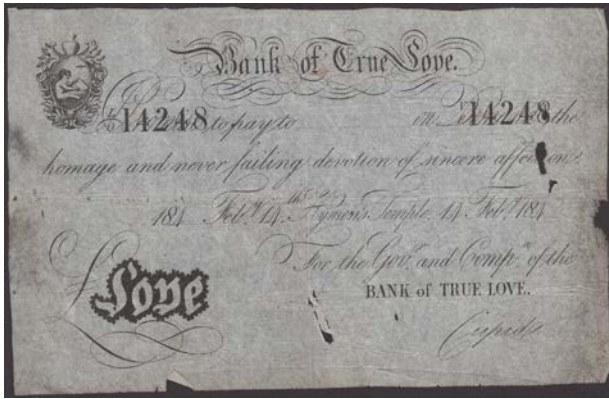 Bank of True Love.
14248 to pay to on 14248 the
homage and never failing devotion of sincere affection
184 Feb.y 14.th Hymen's Temple, 14 Feb.y 184
For the Gov.r and Comp.a of the
£ Love
BANK of TRUE LOVE.
Cupid